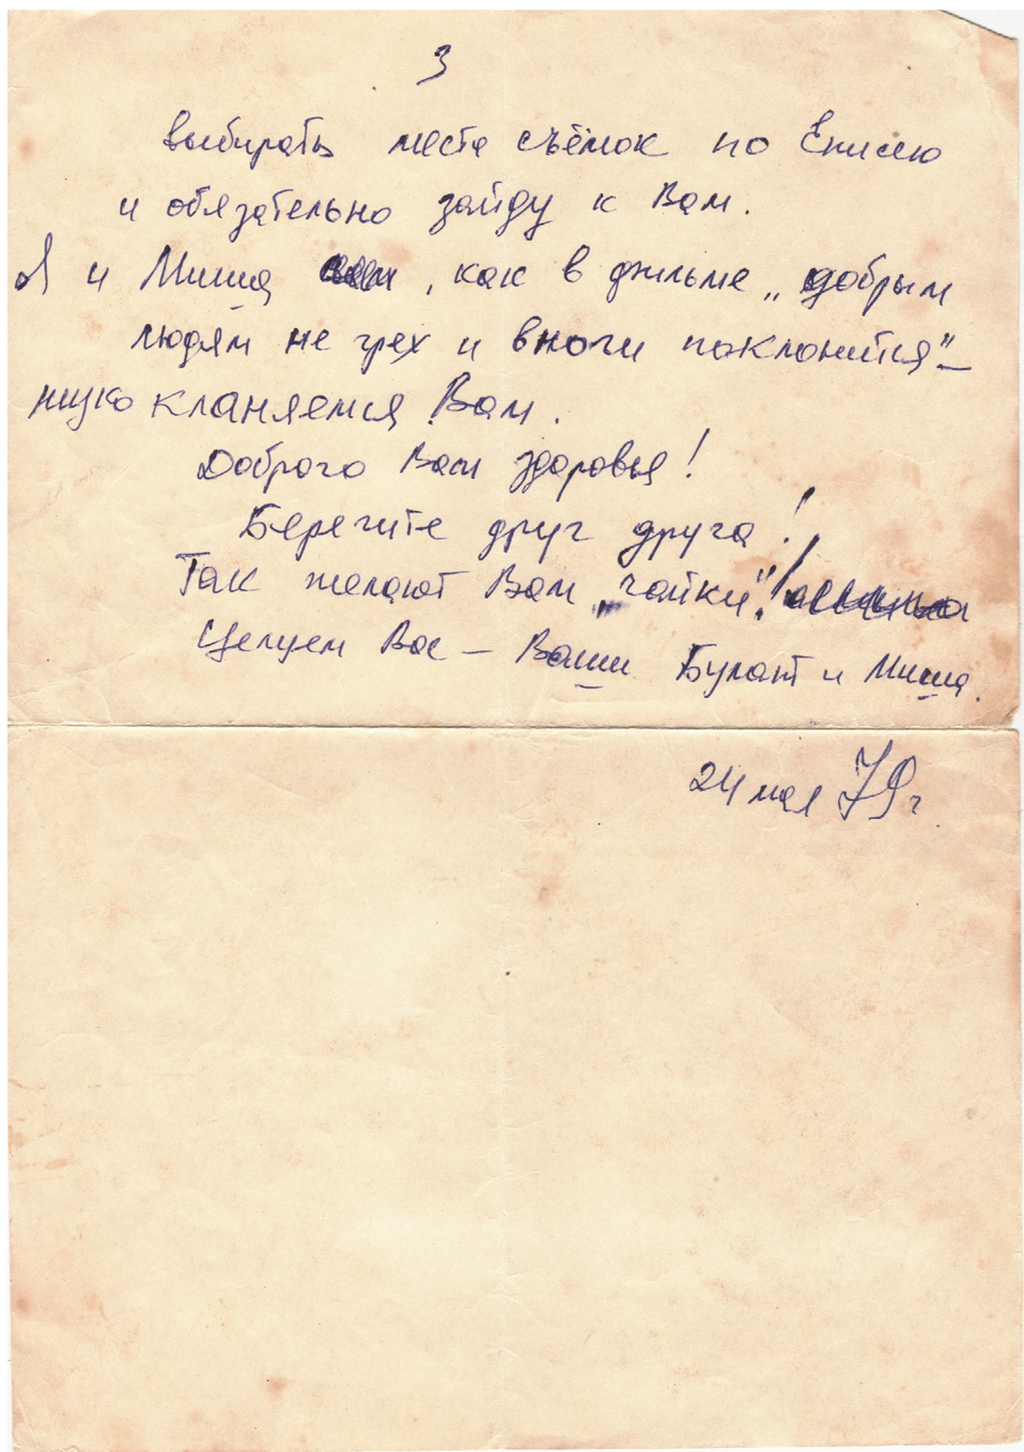 3
выбирать места съёмок по Енисею
и обязательно зайду к Вам.
Я и Миша, как в фильме „добрым
людям не грех и вноги поклонится" –
низко кланяемся Вам.
Доброго Вам здоровья!
Берегите друг друга!
Так желают Вам „чайки"!
Целуем Вас – Ваши Булат и Миша.
24 мая 79 г.